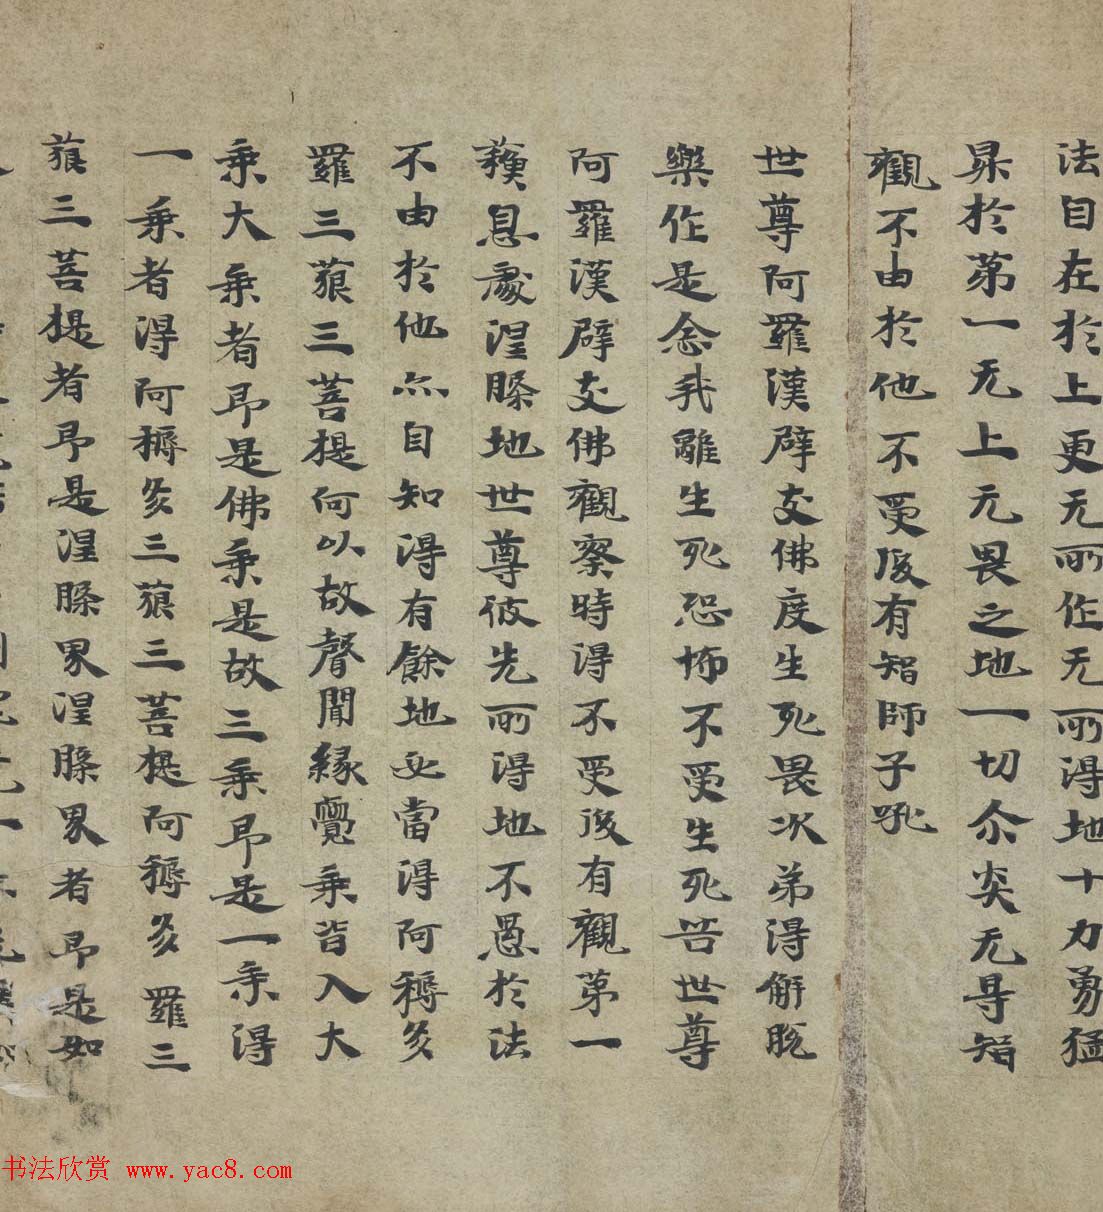 法自在於上更无所作无所得地十力勇猛
昇於第一无上无畏之地一切尒炎无㝵智
觀不由於他不受後有智師子吼
世尊阿羅漢辟支佛度生死畏次弟得解脫
樂作是念我離生死恐怖不受生死苦世尊
阿羅漢辟支佛觀察時得不受後有觀第一
蘇息處涅槃地世尊彼先所得地不愚於法
不由於他亦自知得有餘地必當得阿耨多
羅三藐三菩提何以故聲聞緣覺乘皆入大
乘大乘者即是佛乘是故三乘即是一乘得
一乘者得阿耨多三藐三菩提阿耨多羅三
藐三菩提者即是涅槃界涅槃界者即是如
书法欣赏 www.yac8.com